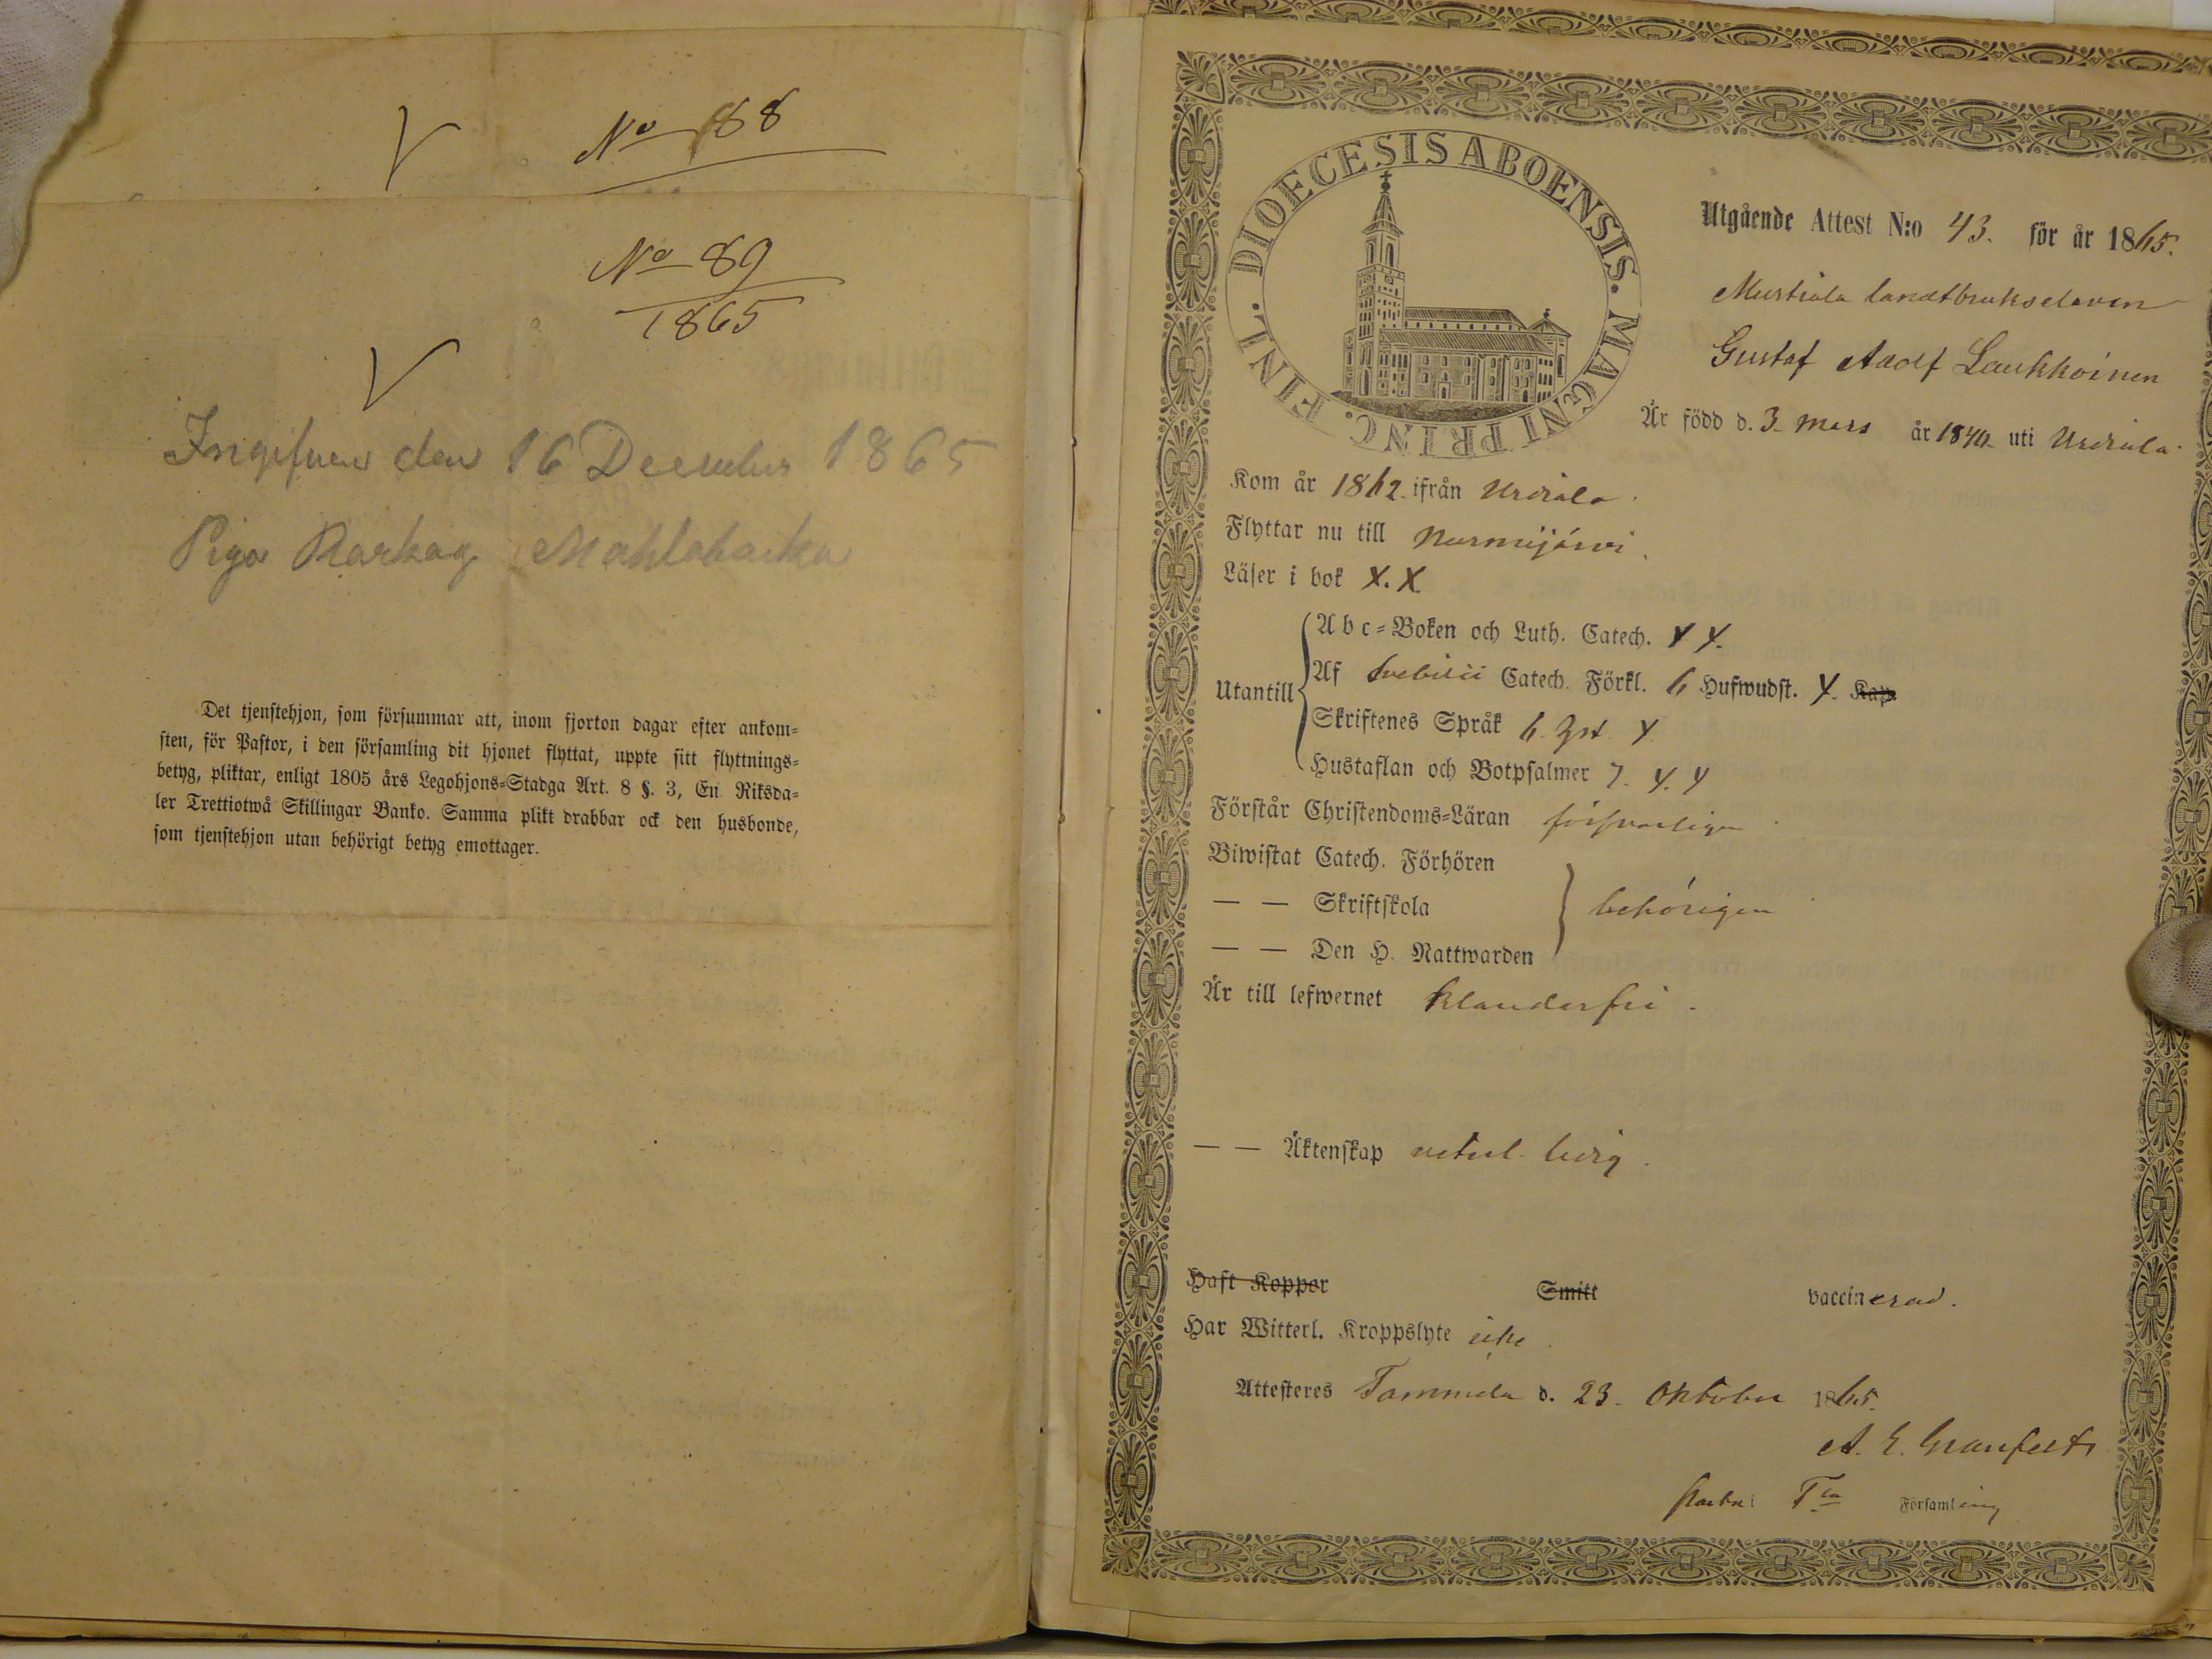 V No 88
No 89
1865
V
Ingifven den 16 December 1865
Piga
Det tjenstehjon, som försummar att, inom fjorton dagar efter ankom=
sten, för Pastor, i den församling dit hjonet flyttat, uppte sitt flyttnings=
betyg, pliktar, enligt 1805 års Legohjons=Stadga Art. 8 §. 3, En Riksda=
ler Trettiotwå Skillingar Banko. Samma plikt drabbar ock den husbonde,
som tjenstehjon utan behörigt betyg emottager.
DIOECESIS ABOENSIS. MAGNI PRINC. FINL.
Utgående Attest N:o 43. för år 1865.
Mustiala landtbrukseleven
Gustaf Adolf Laukkoinen
Är född d. 3. Mars år 1840. uti Urdiala.
Kom år 1862. ifrån Urdiala.
Flyttar nu till Nurmijärvi.
Läser i bok X. X.
Utantill
Abc=Boken och Luth. Catech. X X.
Af Svebilii Catech. Förkl. 6 Hufwudst. X. Kap.
Skriftenes Språk 6. X
Hustaflan och Botpsalmer 7. X. X
Förstår Christendoms=Läran försvarligen
Biwistat Catech. Förhören
— — Skriftskola behörigen
— — Den H. Nattwarden
Är till lefwernet klanderfri.
— — Äktenskap veterl. ledig.
Haft Koppor Smitt vaccinerad.
Har Witterl. Kroppslyte icke
Attesteres Tammela d. 23. Oktober 1865.
A. E. Granfelt
Tla Församling